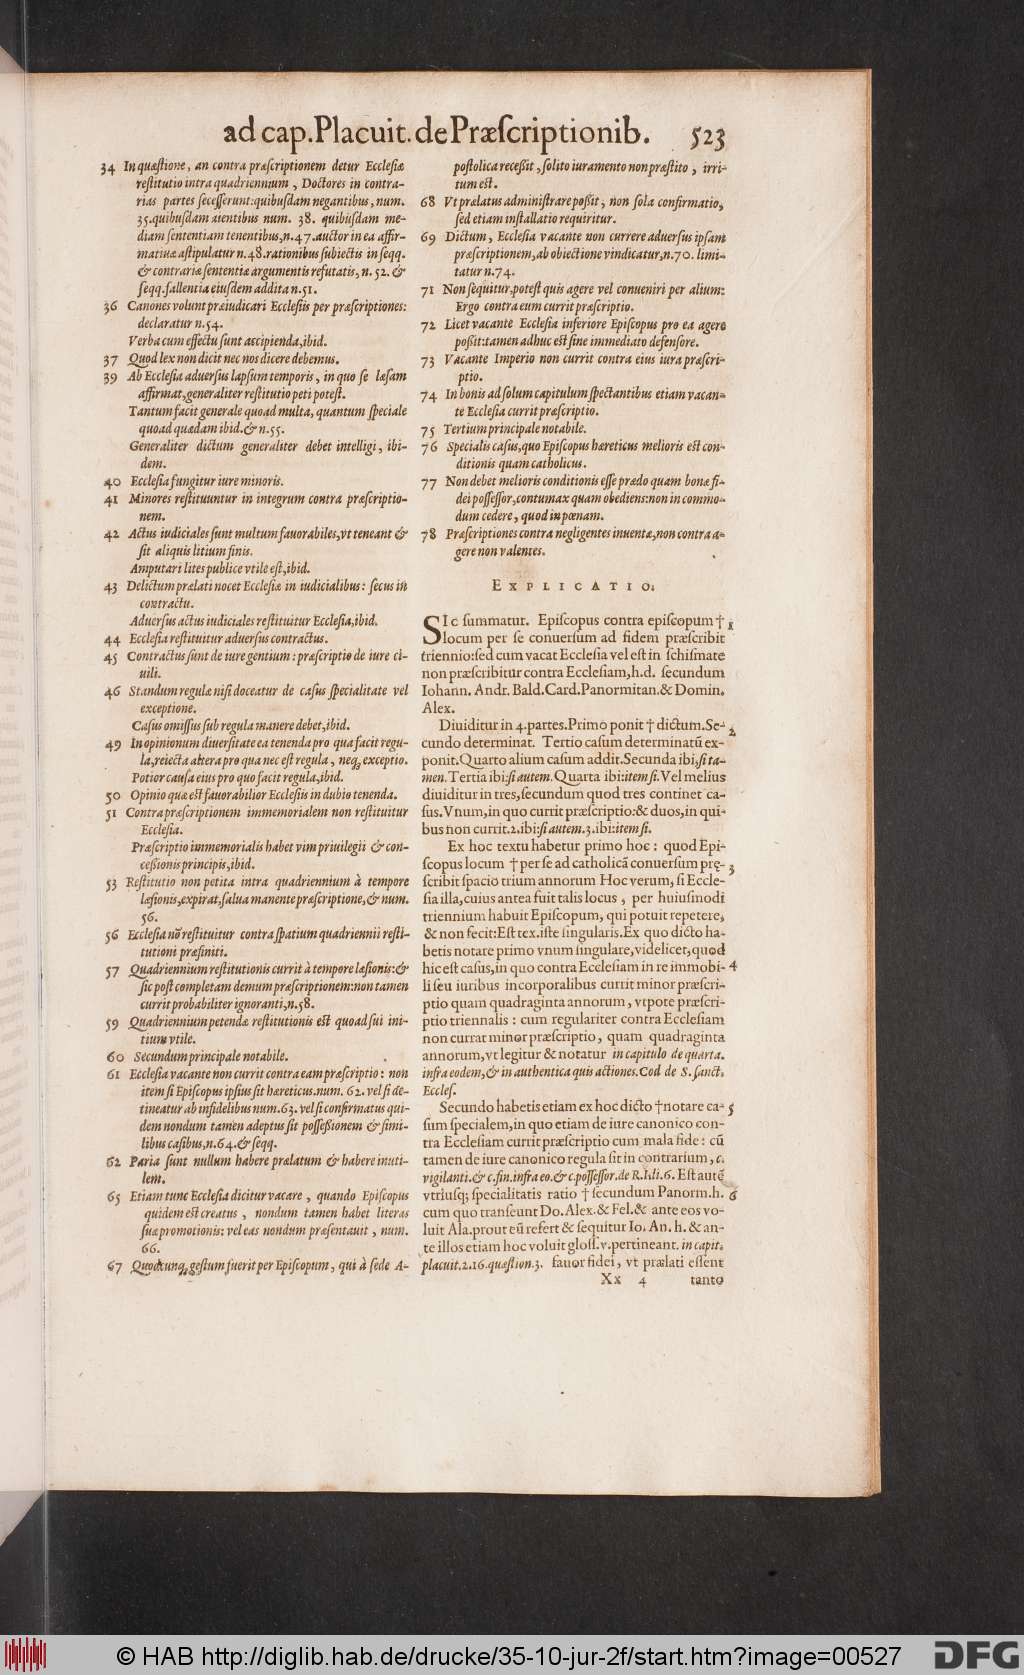 ad cap. Placuit. de Præſcriptionib. 523
34 In quæſtione, an contra præſcriptionem detur Eccleſiæ
reſtitutio intra quadriennium, Doctores in contra-
rias partes ſeceſſerunt: quibuſdam negantibus, num.
35. quibuſdam aientibus num. 38. quibuſdam me-
diam ſententiam tenentibus, n. 47. auctor in ea affir-
matiua aſtipulatur n. 48. rationibus ſubiectis in ſeqq.
& contrariæ ſententiæ argumentis refutatis, n. 52. &
ſeqq. fallentia eiuſdem addita n. 51.
36 Canones volunt præiudicari Eccleſiis per præſcriptiones:
declaratur n. 54.
Verba cum effectu ſunt accipienda, ibid.
37 Quod lex non dicit nec nos dicere debemus.
39 Ab Eccleſia aduerſus lapſum temporis, in quo ſe læſam
affirmat, generaliter reſtitutio peti poteſt.
Tantum facit generale quoad multa, quantum ſpeciale
quoad quædam ibid. & n. 55.
Generaliter dictum generaliter debet intelligi, ibi-
dem.
40 Eccleſia fungitur iure minoris.
41 Minores reſtituuntur in integrum contra præſcriptio-
nem.
42 Actus iudiciales ſunt multum fauorabiles, vt teneant &
ſit aliquis litium finis.
Amputari lites publice vtile eſt, ibid.
43 Delictum prælati nocet Eccleſiæ in iudicialibus: ſecus in
contractu.
Aduerſus actus iudiciales reſtituitur Eccleſia, ibid.
44 Eccleſia reſtituitur aduerſus contractus.
45 Contractus ſunt de iure gentium: præſcriptio de iure ci-
uili.
46 Standum regulæ niſi doceatur de caſus ſpecialitate vel
exceptione.
Caſus omiſſus ſub regula manere debet, ibid.
49 In opinionum diuerſitate ea tenenda pro qua facit regu-
la, reiecta altera pro qua nec eſt regula, neq; exceptio.
Potior cauſa eius pro quo facit regula, ibid.
50 Opinio quæ eſt fauorabilior Eccleſiis in dubio tenenda.
51 Contra præſcriptionem immemorialem non reſtituitur
Eccleſia.
Præſcriptio immemorialis habet vim priuilegii & con-
ceßionis principis, ibid.
53 Reſtitutio non petita intra quadriennium à tempore
læſionis, expirat, ſalua manente præſcriptione, & num.
56.
56 Eccleſia nō reſtituitur contra ſpatium quadriennii reſti-
tutioni præfiniti.
57 Quadriennium reſtitutionis currit à tempore læſionis: &
ſic poſt completam demum præſcriptionem: non tamen
currit probabiliter ignoranti, n. 58.
59 Quadriennium petendæ reſtitutionis eſt quoad ſui ini-
tium vtile.
60 Secundum principale notabile.
61 Eccleſia vacante non currit contra eam præſcriptio: non
item ſi Epiſcopus ipſius ſit hæreticus. num. 62. vel ſi de-
tineatur ab infidelibus num. 63. vel ſi confirmatus qui-
dem nondum tamen adeptus ſit poſſeßionem & ſimi-
libus caſibus, n. 64. & ſeqq.
62 Paria ſunt nullum habere prælatum & habere inuti-
lem.
65 Etiam tunc Eccleſia dicitur vacare, quando Epiſcopus
quidem eſt creatus, nondum tamen habet literas
ſuæ promotionis: vel eas nondum præſentauit, num.
66.
67 Quodcunq; geſtum fuerit per Epiſcopum, qui à ſede A-
poſtolica receßit, ſolito iuramento non præſtito, irri-
tum eſt.
68 Vt prælatus adminiſtrare poßit, non ſola confirmatio,
ſed etiam inſtallatio requiritur.
69 Dictum, Eccleſia vacante non currere aduerſus ipſam
præſcriptionem, ab obiectione vindicatur, n. 70. limi-
tatur n. 74.
71 Non ſequitur, poteſt quis agere vel conueniri per alium:
Ergo contra eum currit præſcriptio.
72 Licet vacante Eccleſia inferiore Epiſcopus pro ea agere
poßit: tamen adhuc eſt ſine immediato defenſore.
73 Vacante Imperio non currit contra eius iura præſcri-
ptio.
74 In bonis ad ſolum capitulum ſpectantibus etiam vacan-
te Eccleſia currit præſcriptio.
75 Tertium principale notabile.
76 Specialis caſus, quo Epiſcopus hæreticus melioris eſt con-
ditionis quam catholicus.
77 Non debet melioris conditionis eſſe prædo quam bonæ fi-
dei poſſeſſor, contumax quam obediens: non in commo-
dum cedere, quod in pœnam.
78 Præſcriptiones contra negligentes inuentæ, non contra a-
gere non valentes.
EXPLICATIO.
SIc ſummatur. Epiſcopus contra epiſcopum † 1
locum per ſe conuerſum ad fidem præſcribit
triennio: ſed cum vacat Eccleſia vel eſt in ſchiſmate
non præſcribitur contra Eccleſiam, h. d. ſecundum
Iohann. Andr. Bald. Card. Panormitan. & Domin.
Alex.
Diuiditur in 4. partes. Primo ponit † dictum. Se- 2
cundo determinat. Tertio caſum determinatū ex-
ponit. Quarto alium caſum addit. Secunda ibi, ſi ta-
men. Tertia ibi: ſi autem. Quarta ibi: item ſi. Vel melius
diuiditur in tres, ſecundum quod tres continet ca-
ſus. Vnum, in quo currit præſcriptio: & duos, in qui-
bus non currit. 2. ibi: ſi autem. 3. ibi: item ſi.
Ex hoc textu habetur primo hoc: quod Epi-
ſcopus locum † per ſe ad catholicā conuerſum prę- 3
ſcribit ſpacio trium annorum Hoc verum, ſi Eccle-
ſia illa, cuius antea fuit talis locus, per huiuſmodi
triennium habuit Epiſcopum, qui potuit repetere,
& non fecit: Eſt tex. iſte ſingularis. Ex quo dicto ha-
betis notare primo vnum ſingulare, videlicet, quod
hic eſt caſus, in quo contra Eccleſiam in re immobi- 4
li ſeu iuribus incorporalibus currit minor præſcri-
ptio quam quadraginta annorum, vtpote præſcri-
ptio triennalis: cum regulariter contra Eccleſiam
non currat minor præſcriptio, quam quadraginta
annorum, vt legitur & notatur in capitulo de quarta.
infra eodem, & in authentica quis actiones. Cod de S. ſanct.
Eccleſ.
Secundo habetis etiam ex hoc dicto † notare ca- 5
ſum ſpecialem, in quo etiam de iure canonico con-
tra Eccleſiam currit præſcriptio cum mala fide: cū
tamen de iure canonico regula ſit in contrarium, c.
vigilanti. & c. fin. infra eo. & c. poſſeſſor. de R. I. li. 6. Eſt autē
vtriuſq; ſpecialitatis ratio † ſecundum Panorm. h. 6
cum quo tranſeunt Do. Alex. & Fel. & ante eos vo-
luit Ala. prout eū refert & ſequitur Io. An. h. & an-
te illos etiam hoc voluit gloſſ. v. pertineant. in capit.
placuit. 2. 16. quæſtion. 3. fauor fidei, vt prælati eſſent
Xx 4 tanto
© HAB http://diglib.hab.de/drucke/35-10-jur-2f/start.htm?image=00527
DFG